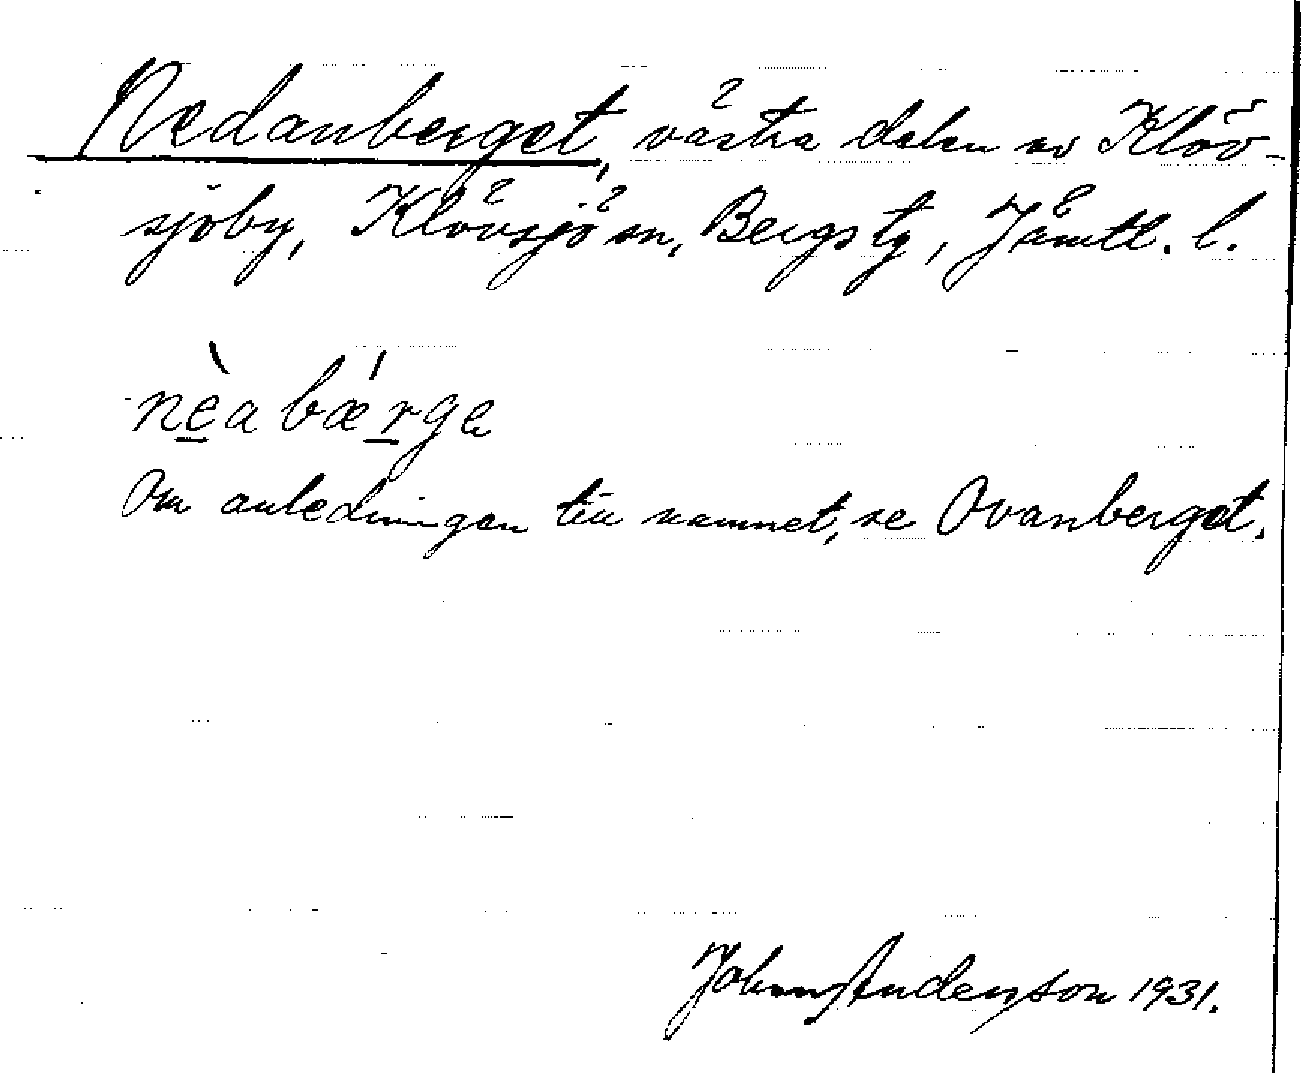 Nedanberget, västra delen av Klöv-
sjöby, Klövsjö sn, Bergs tg, Jämtl. l.
nèa bǽrge
Om anledningen till namnet, se Ovanberget.
Johan Andersson 1931.